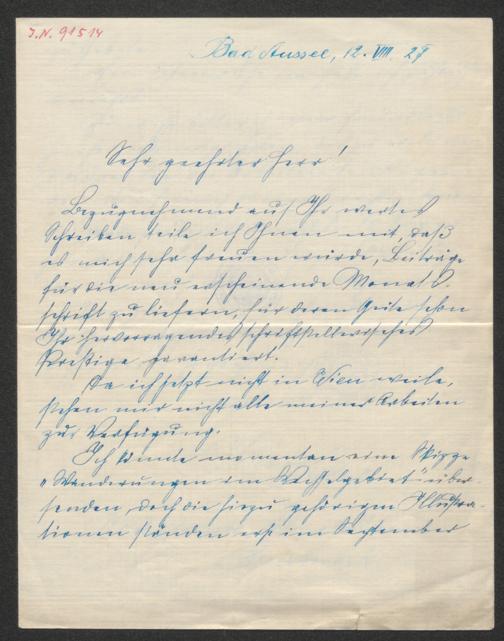 I.N. 91514
Bad Aussee, 12. VIII. 27
Sehr geehrter Herr!
Bezugnehmend auf Ihr wertes
Schreiben, teile ich Ihnen mit, daß
es mich sehr freuen würde, Beiträge
für die neu erscheinende Monats-
schrift zu liefern, für deren Güte schon
Ihr hervorragendes schriftstellerisches
Prestige garantiert.
Da ich jetzt nicht in Wien weile,
stehen mir nicht alle meiner Arbeiten
zur Verfügung.
Ich könnte momentan eine Skizze
"Wanderungen im Wechselgebiet" über-
senden, doch die hiezu gehörigen Illustra-
tionen ständen erst im September